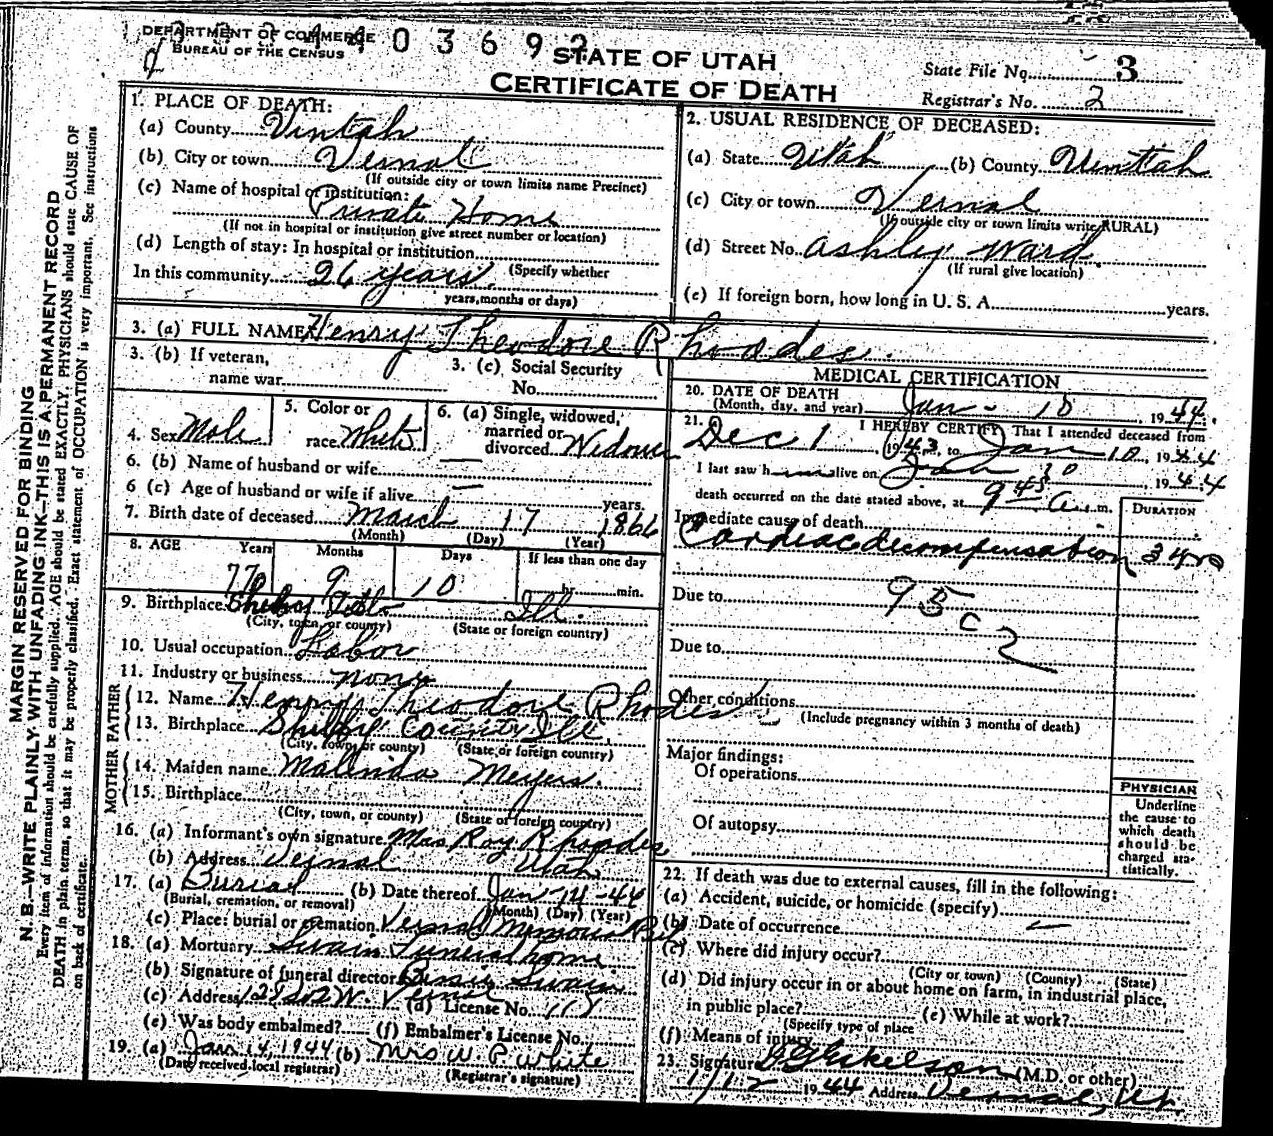 DEPARTMENT OF COMMERCE
BUREAU OF THE CENSUS
0 3 6 9 2
STATE OF UTAH
CERTIFICATE OF DEATH
State File No. 3
Registrar's No. 2
MARGIN RESERVED FOR BINDING
N. B.—WRITE PLAINLY, WITH UNFADING INK—THIS IS A PERMANENT RECORD
Every item of information should be carefully supplied. AGE should be stated EXACTLY. PHYSICIANS should state CAUSE OF
DEATH in plain terms, so that it may be properly classified. Exact statement of OCCUPATION is very important. See instructions
on back of certificate.
1. PLACE OF DEATH:
(a) County Uintah
(b) City or town Vernal
(If outside city or town limits name Precinct)
(c) Name of hospital or institution:
Private Home
(If not in hospital or institution give street number or location)
(d) Length of stay: In hospital or institution
(Specify whether
In this community 26 years.
years, months or days)
2. USUAL RESIDENCE OF DECEASED:
(a) State Utah (b) County Uintah
(c) City or town Vernal
(If outside city or town limits write RURAL)
(d) Street No. Ashley Ward.
(If rural give location)
(e) If foreign born, how long in U. S. A. years.
3. (a) FULL NAME Henry Theodore Rhoades.
3. (b) If veteran,
name war
3. (c) Social Security
No.
4. Sex Male
5. Color or
race White
6. (a) Single, widowed,
married or
divorced Widower
6. (b) Name of husband or wife —
6 (c) Age of husband or wife if alive — years.
7. Birth date of deceased March 17 1866
(Month) (Day) (Year)
8. AGE Years Months Days If less than one day
9 10 hr. min.
9. Birthplace Ill.
(City, town, or county) (State or foreign country)
10. Usual occupation Labor
11. Industry or business none
FATHER
12. Name Henry Theodore Rhodes
13. Birthplace Shelby County Ill.
(City, town, or county) (State or foreign country)
MOTHER
14. Maiden name Malinda Meyers.
15. Birthplace
(City, town, or county) (State or foreign country)
16. (a) Informant's own signature Mrs Roy Rhoades
(b) Address Vernal Utah
17. (a) Burial (b) Date thereof Jan-14-44
(Burial, cremation, or removal) (Month) (Day) (Year)
(c) Place: burial or cremation Vernal Memorial
18. (a) Mortuary Swain Funeral home
(b) Signature of funeral director Swain
(c) Address Vernal (d) License No.
(e) Was body embalmed? (f) Embalmer's License No.
19. (a) Jan 14, 1944 (b) Mrs W. P. White
(Date received local registrar) (Registrar's signature)
MEDICAL CERTIFICATION
20. DATE OF DEATH
(Month, day, and year) Jan - 10 1944.
21. I HEREBY CERTIFY That I attended deceased from
Dec 1 1943, to Jan 10, 1944
I last saw him alive on Jan 10, 1944
death occurred on the date stated above, at 9 45 a. m.
Immediate cause of death
DURATION
Cardiac decompensation
Due to
95c2
Due to
Other conditions
(Include pregnancy within 3 months of death)
Major findings:
Of operations
Of autopsy
PHYSICIAN
Underline
the cause to
which death
should be
charged sta-
tistically.
22. If death was due to external causes, fill in the following:
(a) Accident, suicide, or homicide (specify)
(b) Date of occurrence —
(c) Where did injury occur?
(City or town) (County) (State)
(d) Did injury occur in or about home on farm, in industrial place,
in public place? (e) While at work?
(Specify type of place
(f) Means of injury
23. Signature Eskelson (M.D. or other)
1/12 1944 Address Vernal, Ut.